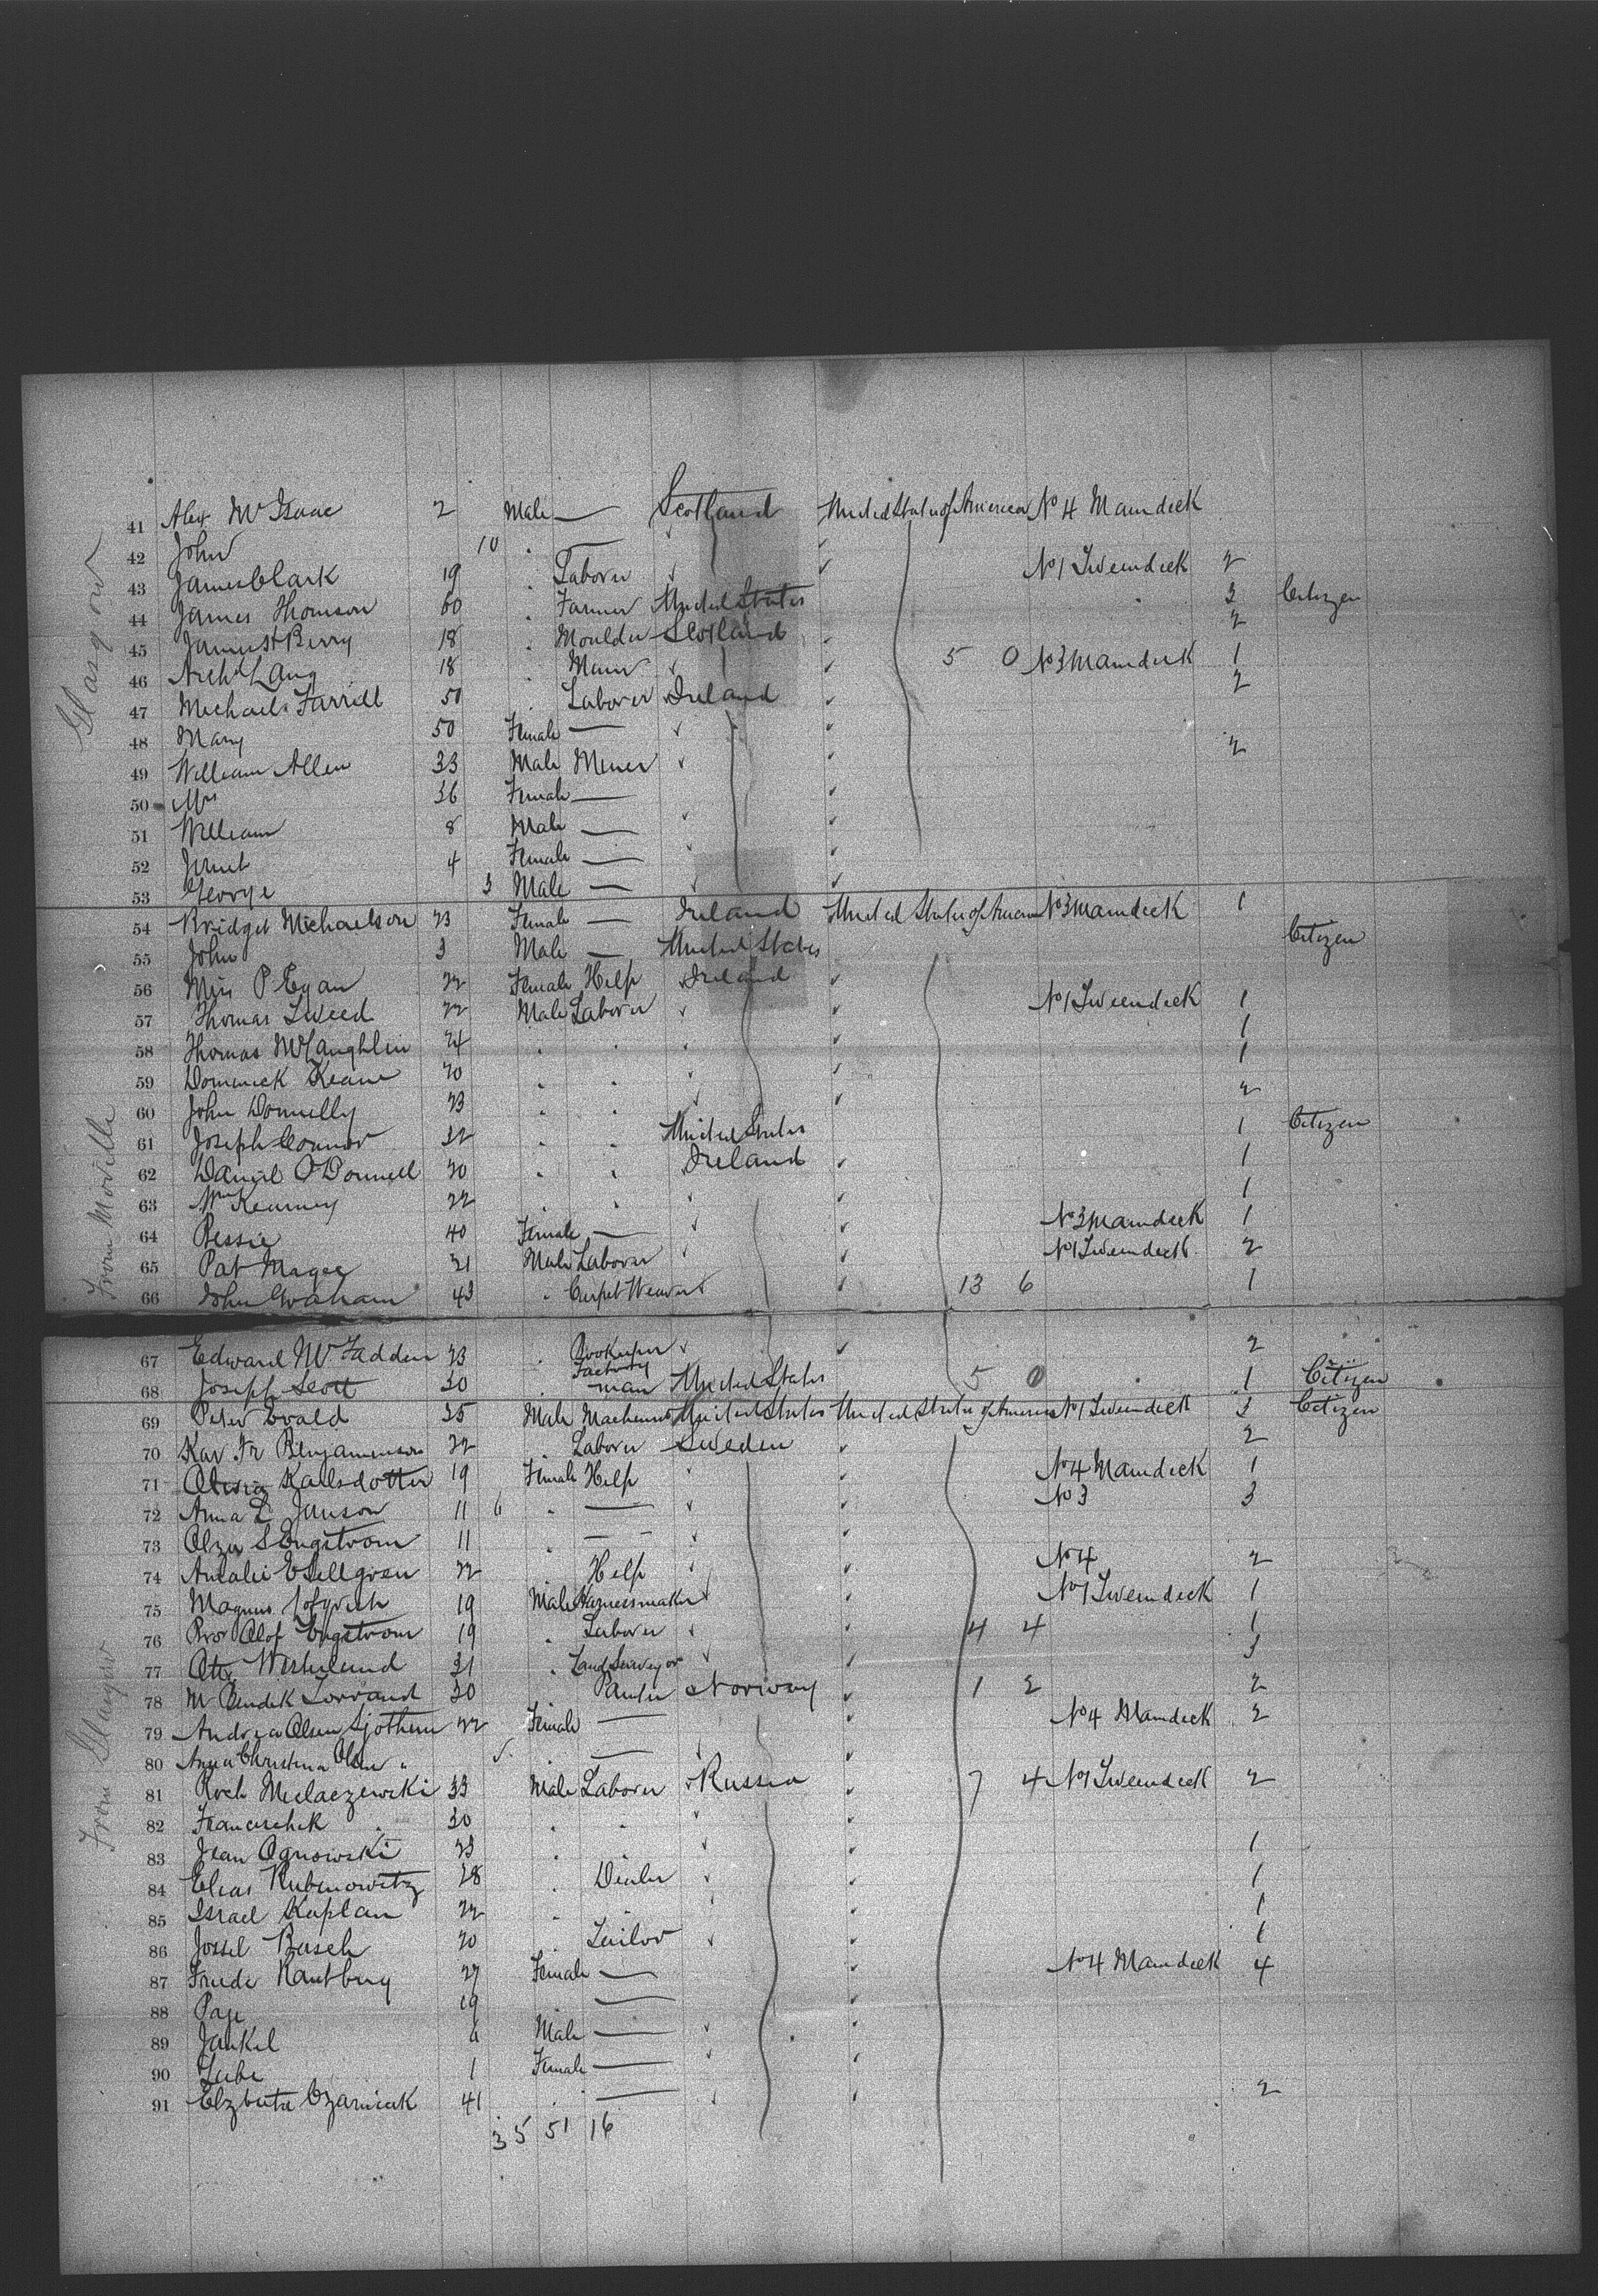 Glasgow
41 Alex McIsaac 2 Male — Scotland United States of America No 4 Maindeck
42 John 10 " ✓ ✓
43 James Clark 19 " Laborer ✓ ✓ No 1 Tweendeck 2
44 James Thomson 60 " Farmer United States " 3 Citizen
45 James H Berry 18 " Moulder Scotland ✓ 2
46 Archd Lang 18 " ✓ ✓ 5 0 No 3 Maindeck 1
47 Michael Farrell 50 " Laborer Ireland ✓ 2
48 Mary 50 Female — ✓ ✓
49 William Allen 33 Male Miner ✓ ✓ 2
50 Mrs 36 Female — ✓
51 William 8 Male — ✓ ✓
52 Janet 4 Female — ✓
53 George 3 Male — ✓ ✓
From Moville
54 Bridget Michaelson 23 Female — Ireland United States of America No 3 Maindeck 1
55 John 3 Male — United States Citizen
56 Miss P Egan 22 Female Help Ireland ✓
57 Thomas Tweed 22 Male Laborer ✓ ✓ No 1 Tweendeck 1
58 Thomas McLaughlin 24 " " " ✓ 1
59 Dominick Keane 20 " " ✓ ✓ 1
60 John Donnelly 23 " " ✓ ✓ 2
61 Joseph Connor 32 " " United States 1 Citizen
62 Daniel O'Donnell 20 " " Ireland ✓ 1
63 Wm Kearney 22 " " ✓ ✓ 1
64 Bessie 40 Female — ✓ ✓ No 3 Maindeck 1
65 Pat Magee 21 Male Laborer ✓ ✓ No 1 Tweendeck 2
66 John Graham 43 " Carpet Weaver ✓ ✓ 13 6 1
67 Edward McFadden 23 " Bookeeper ✓ ✓ 2
68 Joseph Scott 30 " Factory man United States 5 0 " 1 Citizen
From Glasgow
69 Peter Evald 35 Male Machinist United States United States of America No 1 Tweendeck 3 Citizen
70 Kar Fr Benjaminson 22 " Laborer Sweden ✓ 2
71 Karlsdotter 19 Female Help ✓ ✓ No 4 Maindeck 1
72 Anna L Janson 11 6 " — ✓ ✓ No 3 3
73 Olga S Engstrom 11 " — — ✓ ✓
74 Amalie E Sellgren 22 Help ✓ ✓ No 4 2
75 Magnus Lofqvish 19 Male Harnessmaker ✓ ✓ No 1 Tweendeck 1
76 Olof Engstrom 19 " Laborer ✓ ✓ 4 4 1
77 Westerlund 31 " Land Surveyor ✓ ✓ 3
78 M Bendik 30 Painter Norway ✓ 1 2 2
79 Andrea Olsen Sjothem 22 Female — ✓ No 4 Maindeck 2
80 Anna Christina Olsen " 5 " — ✓ ✓
81 Roch 33 Male Laborer ✓ Russia ✓ 7 4 No 1 Tweendeck 2
82 Francischek " 30 " " ✓ ✓
83 Jean Ognowski 23 " ✓ ✓ 1
84 Elias Rubinowitz 28 " Dealer ✓ ✓ 1
85 Israel Kaplan 22 " ✓ ✓ 1
86 Jossel Basch 20 " Tailor ✓ ✓ 1
87 Frude Rautburg 27 Female — ✓ No 4 Maindeck 4
88 19 " — ✓
89 Jankel 6 Male — ✓ ✓
90 1 Female — ✓ ✓
91 Elzbeta Czarniak 41 " — ✓ ✓ 2
35 51 16